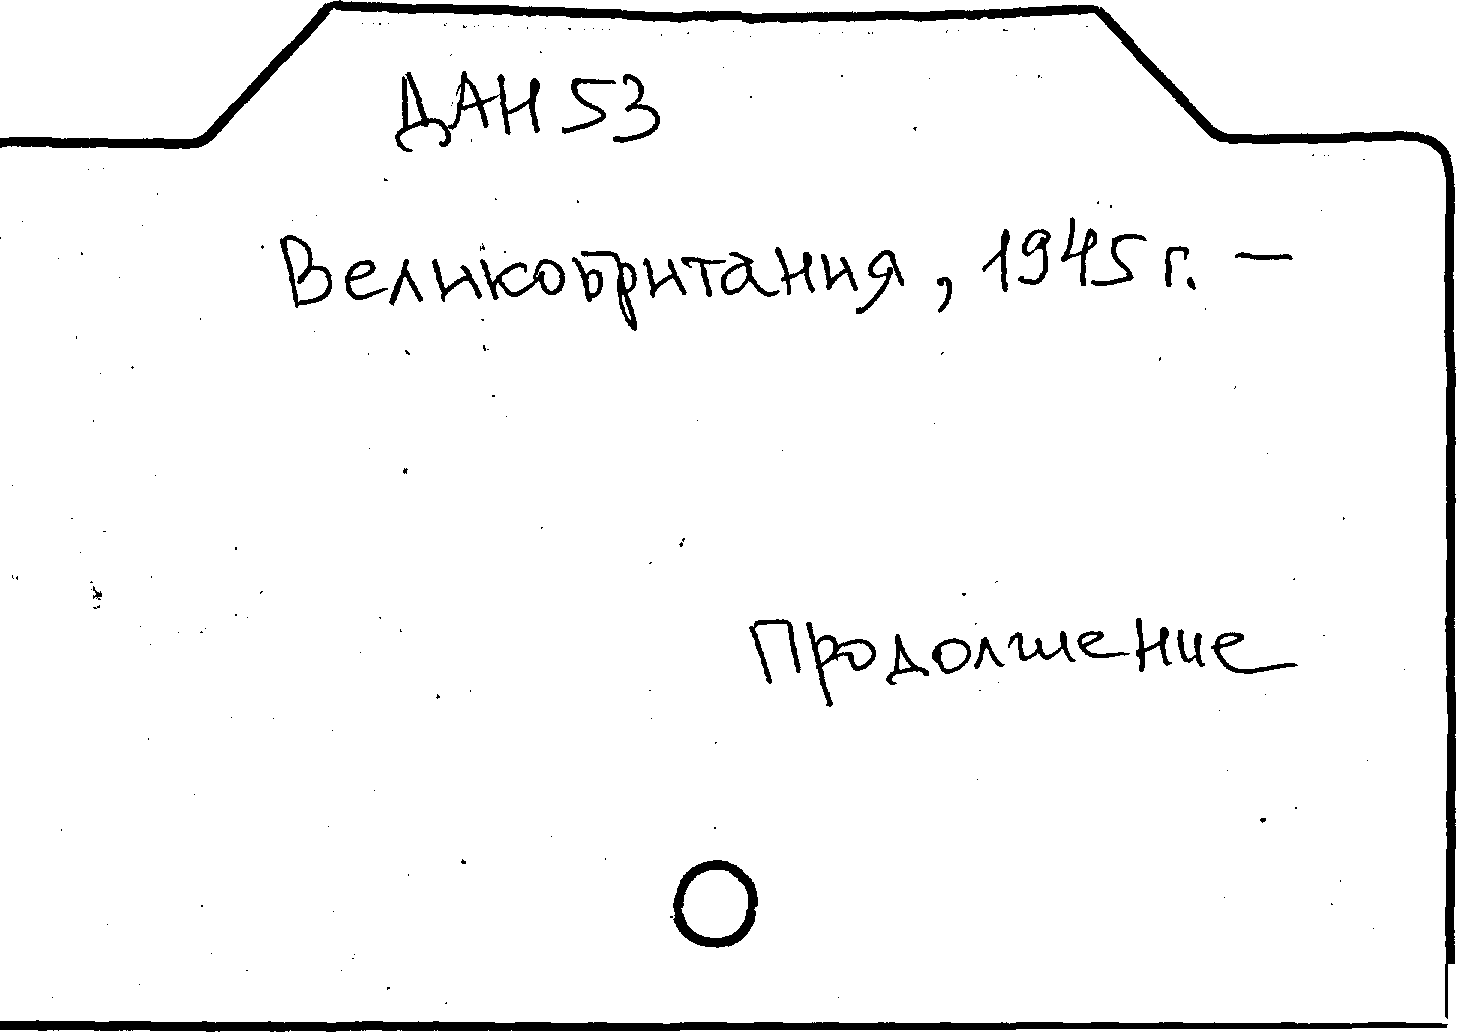 ДАН 53
Великобритания, 1945 г. —
Продолжение